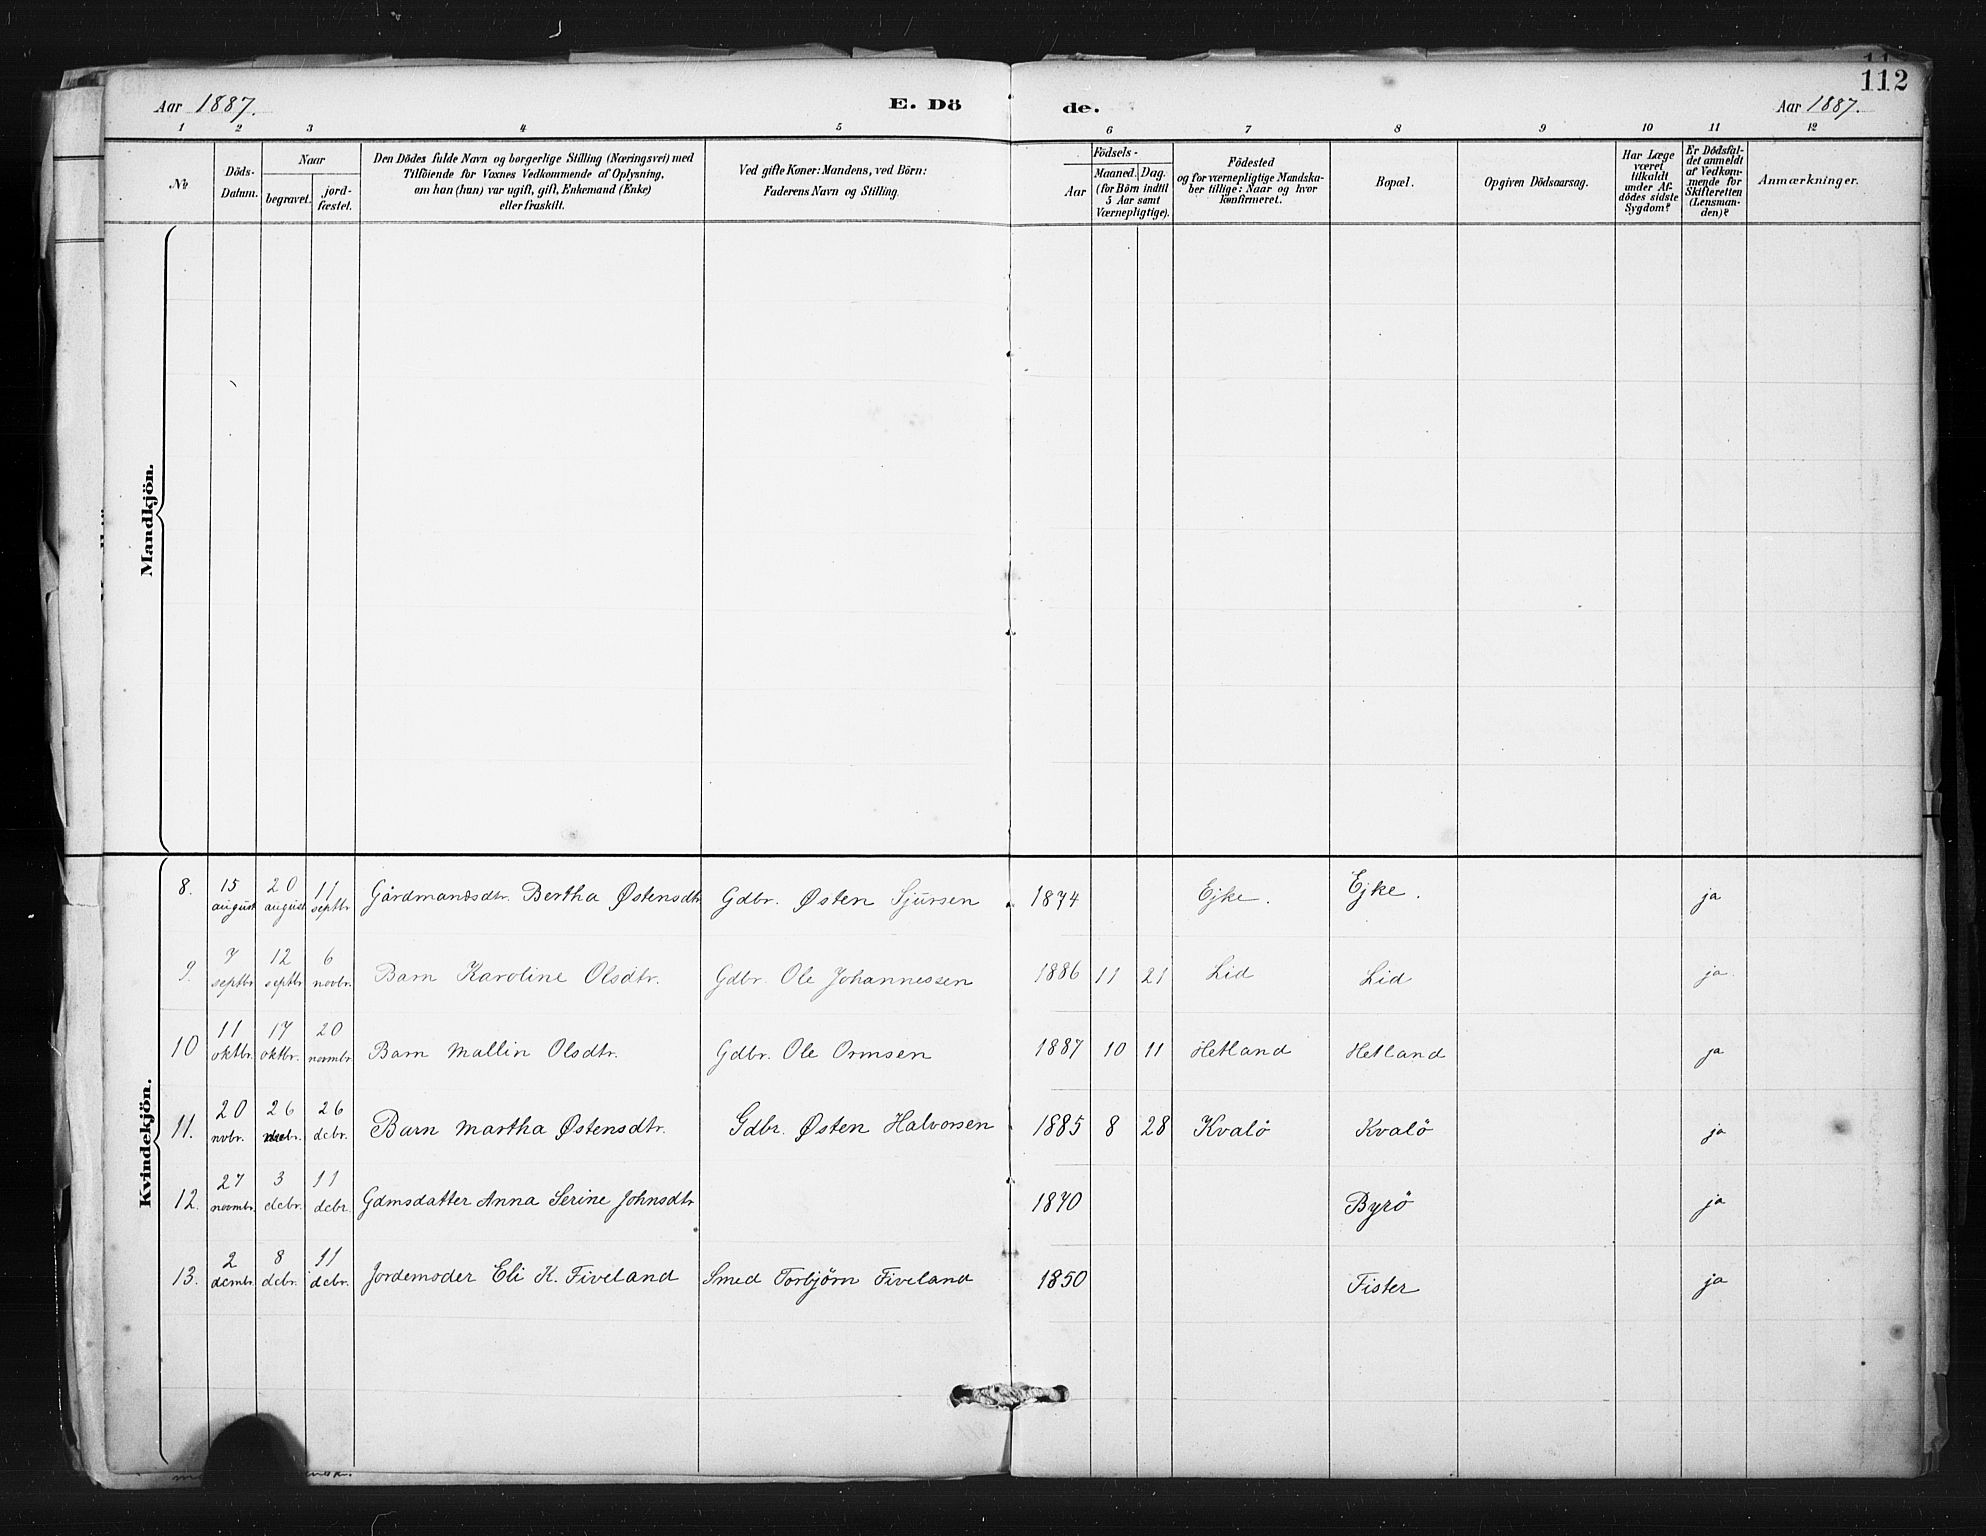 112
Aar 1887.
E. Dö de.
Aar 1887.
1 2 3 4 5 6 7 8 9 10 11 12
No
Döds-Datum.
Naar
begravet.
jord-fæstet.
Den Dödes fulde Navn og borgerlige Stilling (Næringsvei) med
Tilföiende for Voxnes Vedkommende af Oplysning,
om han (hun) var ugift, gift, Enkemand (Enke)
eller fraskilt.
Ved gifte Koner: Mandens, ved Börn:
Faderens Navn og Stilling.
Födsels-
Aar
Maaned. Dag.
(for Börn indtil
5 Aar samt
Værnepligtige).
Födested
og for værnepligtige Mandska-
ber tillige: Naar og hvor
konfirmeret.
Bopæl.
Opgiven Dödsaarsag.
Har Læge
været
tilkaldt
under Af-
dödes sidste
Sygdom?
Er Dödsfal-
det anmeldt
af Vedkom-
mende for
Skifteretten
(Lensman-
den)?
Anmærkninger.
Mandkjön.
Kvindekjön.
8. 15 august 20 august 11 septbr Gårdmandsdtr. Bertha Østensdtr Gdbr. Østen Sjursen 1874 Ejke. Ejke. ja
9. 7 septbr 12 septbr 6 novbr. Barn Karoline Olsdtr. Gdbr. Ole Johannessen 1886 11 21 Lid Lid ja.
10 11 oktbr. 17 oktbr. 20 novmbr. Barn Mallin Olsdtr. Gdbr. Ole Ormsen 1887 10 11 Hetland Hetland ja
11. 20 nvbr. 26 26 dcbr. Barn Martha Østensdtr. Gdbr. Østen Halvorsen 1885 8 28 Kvalö Kvalö ja
12. 27 novmbr. 3 dcbr. 11 dcbr. Gdmsdatter Anna Serine Johnsdtr 1870 Byrö ja
13. 2 dcmbr. 8 dcbr. 11 dcbr. Jordemoder Eli K. Fiveland Smed Torbjörn Fiveland 1850 Fister ja